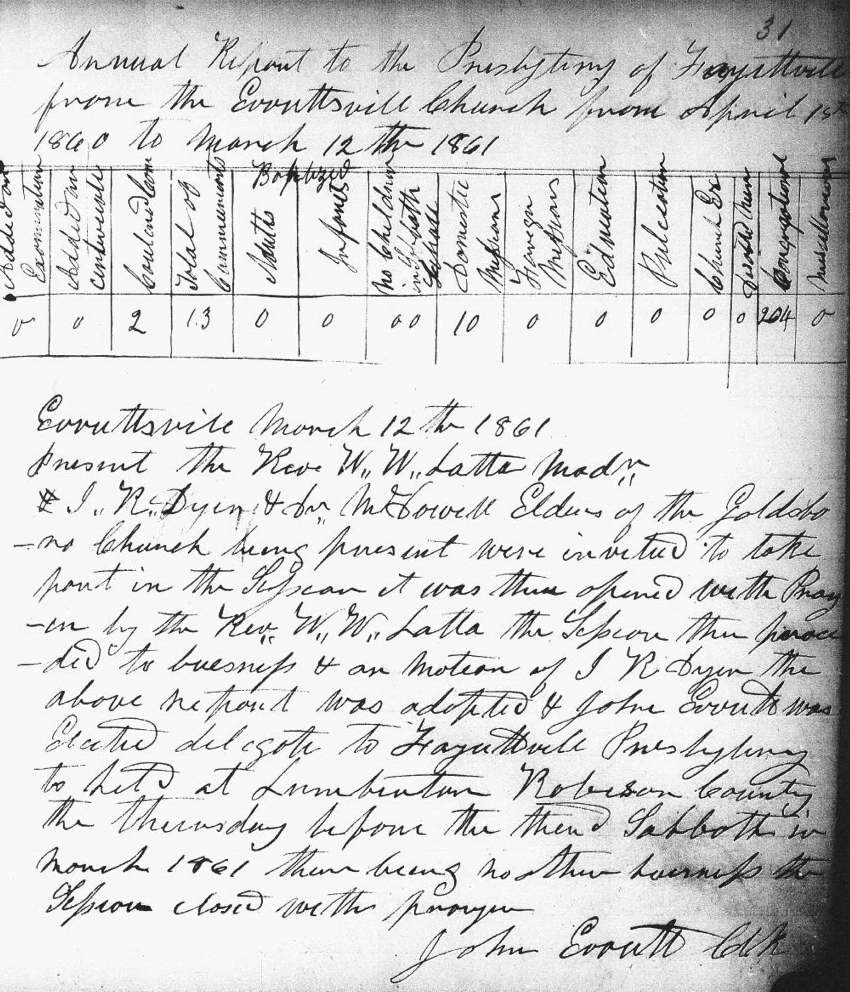 31
Annual Report to the Presbytery of Fayettville
from the Everittsvill Church from April 1st
1860 to March 12 th 1861
Added on Examination
Added on certificate
Coulered Com
Total of Communicants
Baptized
Adults
Infants
No Children in Sabbath
Domestic Missions
Foreign Missions
Education
Publication
Church Ex
Congregational
Miscellaneous
0 0 2 13 0 0 00 10 0 0 0 0 0 204 0
Everittsvile March 12 th 1861
Present the Reve W,, W,, Latta Modr,,
& I,, R,, Dyer & Dr,, McDowell Elders of the Goldsbo
-ro Church being present were invited to take
part in the Session it was then opened with Pray
-er by the Rev,, W,, W,, Latta the Session then procee
-ded to buesness & on Motion of I R Dyer the
above report was adopted & John Everitt was
Elected delegate to Fayettville Presbytery
to held at Lumberton Robeson County
the thursday before the third Sabboth in
March 1861 there being no other buesness the
Session closed with prayer
John Everitt Clk